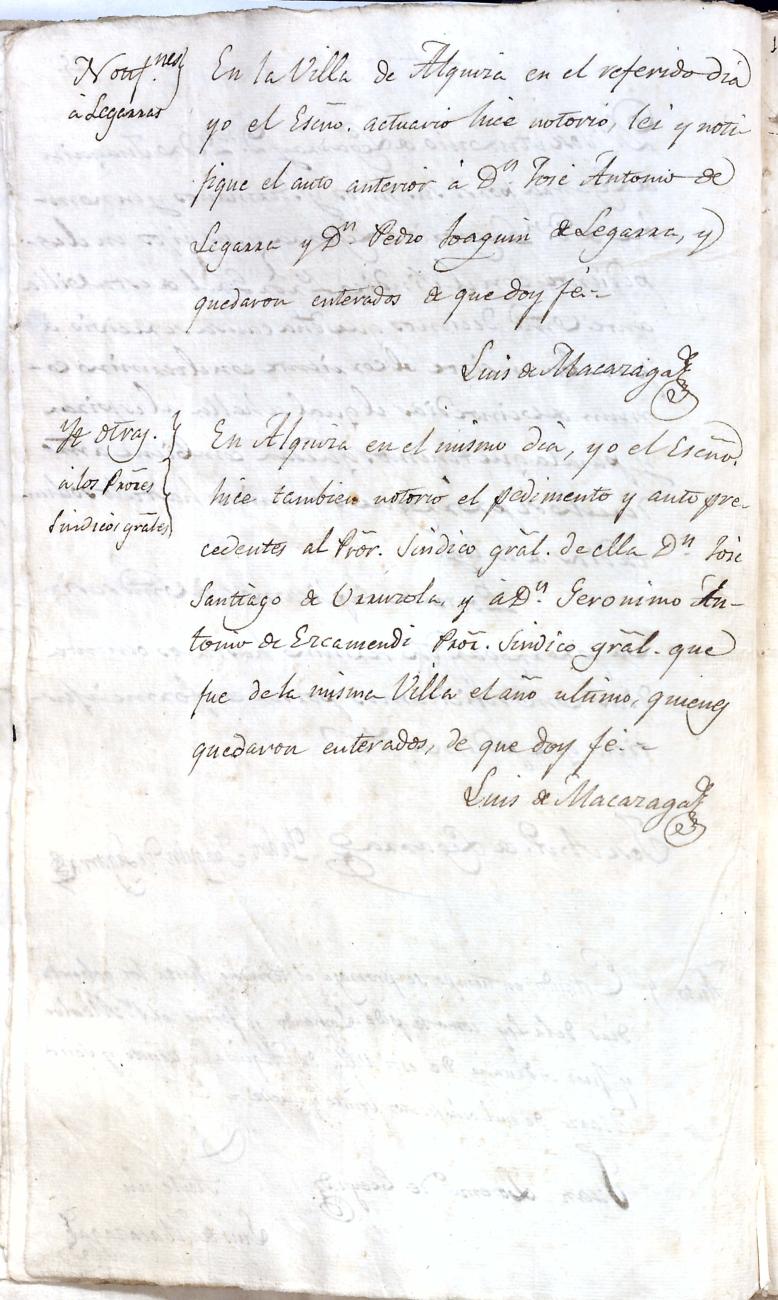 Notif.nes
a Legarras
En la Villa de Alquiza en el referido dia
yo el EsñO. actuario hice notorio, lei y noti
fique el auto anterior à Dn José Antonio de
Legarra y Dn. Pedro Joaquin de Legarra, y
quedaron enterados de que doy fé.=
Luis de Macazaga
Yt otras.
à los Prōres
Sindicos grāles
En Alquiza en el mismo dia, yo el Esñō.
hice tambien notorio el pedimento y auto pre-
cedentes al Prōr. Sindico grāl. de ella Dn José
Santiago de Urruzola, y à Dn. Geronimo An-
tonio de Ercamendi Prōr. Sindico grāl. que
fue de la misma Villa el año ultimo, quienes
quedaron enterados, de que doy fé.=
Luis de Macazaga